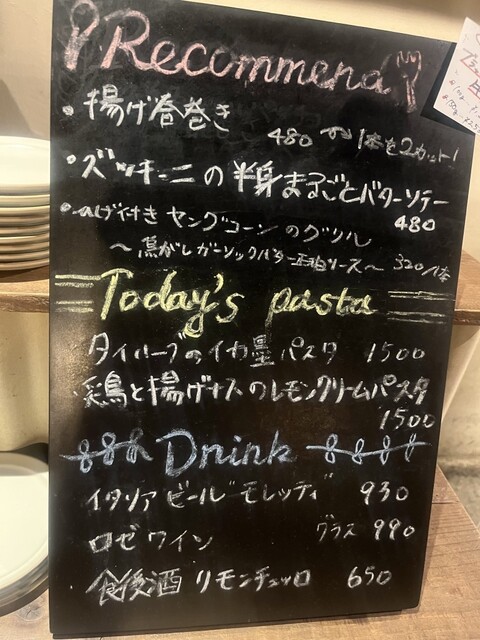 Recommend
・揚げ春巻き
480 1本を2カット!
・ズッキーニの半身まるごとバターソテー
480
・ひげ付きヤングコーンのグリル
～焦がしガーリックバター醤油ソース～ 320/1本
Today's pasta
タイハーブのイカ墨パスタ 1500
鶏と揚げナスのレモンクリームパスタ
1500
Drink
イタリアビール"モレッティ" 930
ロゼワイン グラス 990
食後酒 リモンチェッロ 650